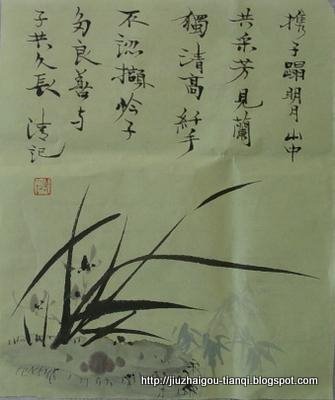 携子蹋明月山中
共采芳見蘭
獨清高纤手
不認擷怜子
多良善与
子共久長 清記
http://jiuzhaigou-tianqi.blogspot.com/